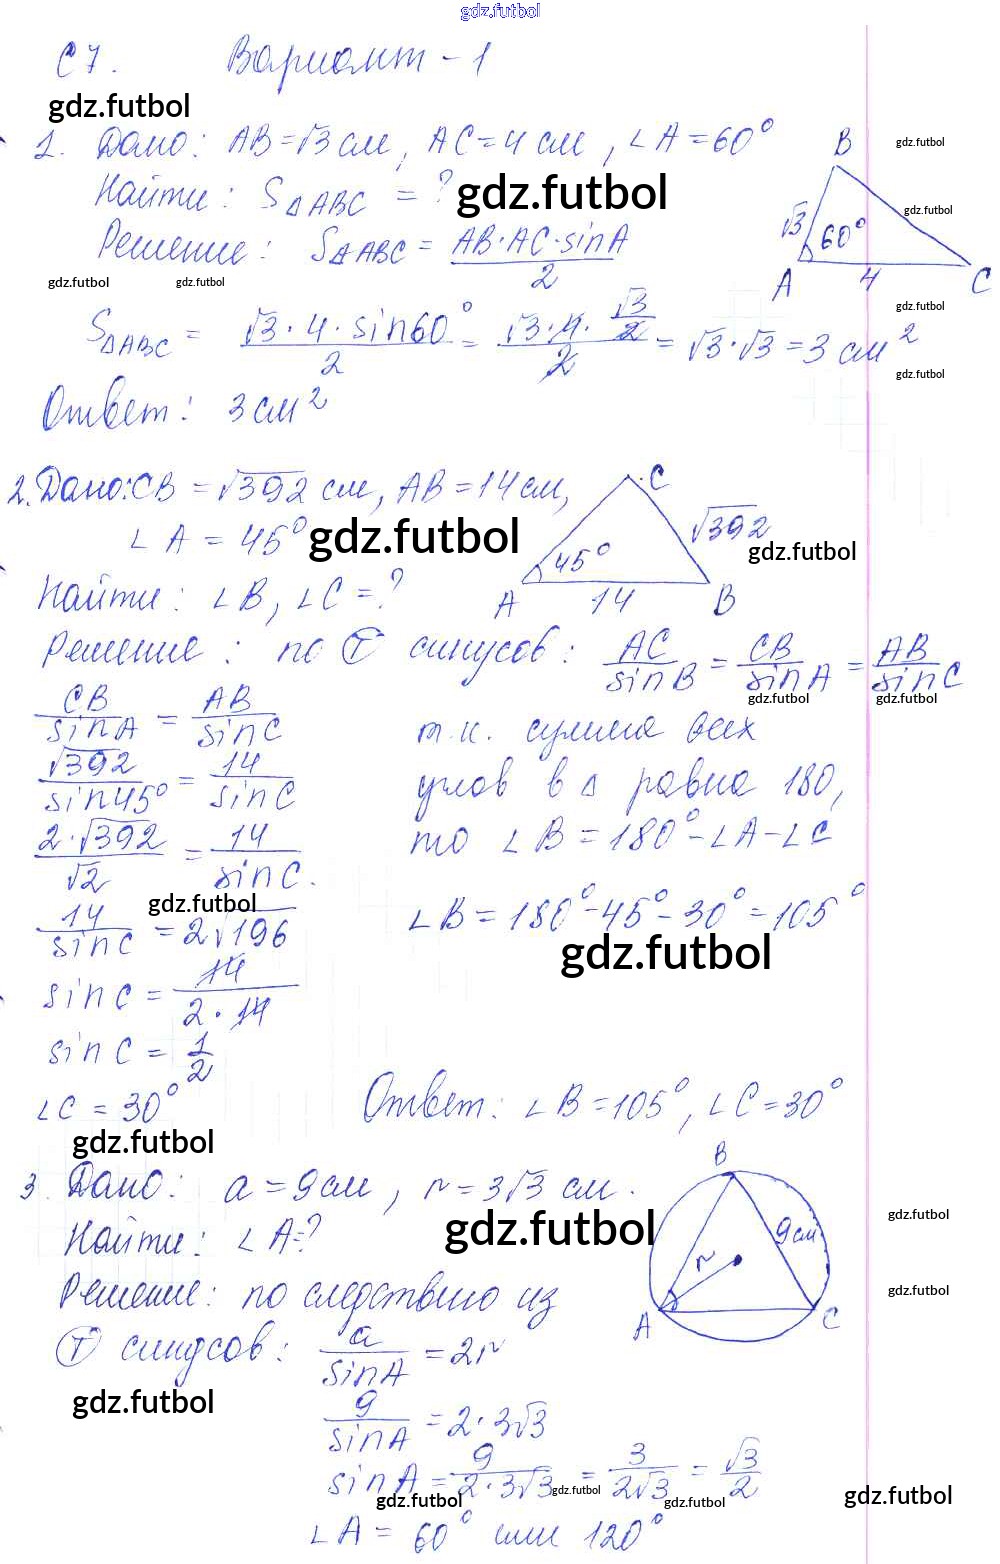 gdz.futbol
С 7. Вариант - 1
gdz.futbol
1. Дано: AB = √3 см, AC = 4 см, ∠A = 60°
Найти: S△ABC = ?
gdz.futbol
Решение: S△ABC = AB·AC·sinA / 2
B
√3 60°
A 4 C
gdz.futbol
gdz.futbol
gdz.futbol
gdz.futbol
gdz.futbol
S△ABC = √3·4·sin60° / 2 = √3·4·√3/2 / 2 = √3·√3 = 3 см²
gdz.futbol
Ответ: 3 см²
2. Дано: CB = √392 см, AB = 14 см,
∠A = 45°
gdz.futbol
C
√392
45°
A 14 B
gdz.futbol
Найти: ∠B, ∠C = ?
Решение: по Т синусов: AC / sinB = CB / sinA = AB / sinC
gdz.futbol
gdz.futbol
CB / sinA = AB / sinC
√392 / sin45° = 14 / sinC
2·√392 / √2 = 14 / sinC.
gdz.futbol
14 / sinC = 2√196
sinC = 14 / 2·14
sinC = 1/2
∠C = 30°
т.к. сумма всех
углов в △ равна 180,
то ∠B = 180° - ∠A - ∠C
∠B = 180° - 45° - 30° = 105°
gdz.futbol
Ответ: ∠B = 105°, ∠C = 30°
gdz.futbol
3. Дано: a = 9 см, r = 3√3 см.
Найти: ∠A = ?
gdz.futbol
B
9 см
r
A C
gdz.futbol
gdz.futbol
Решение: по следствию из
Т синусов: a / sinA = 2r
gdz.futbol
9 / sinA = 2·3√3
sinA = 9 / 2·3√3 = 3 / 2√3 = √3 / 2
gdz.futbol
gdz.futbol
gdz.futbol
gdz.futbol
∠A = 60° или 120°